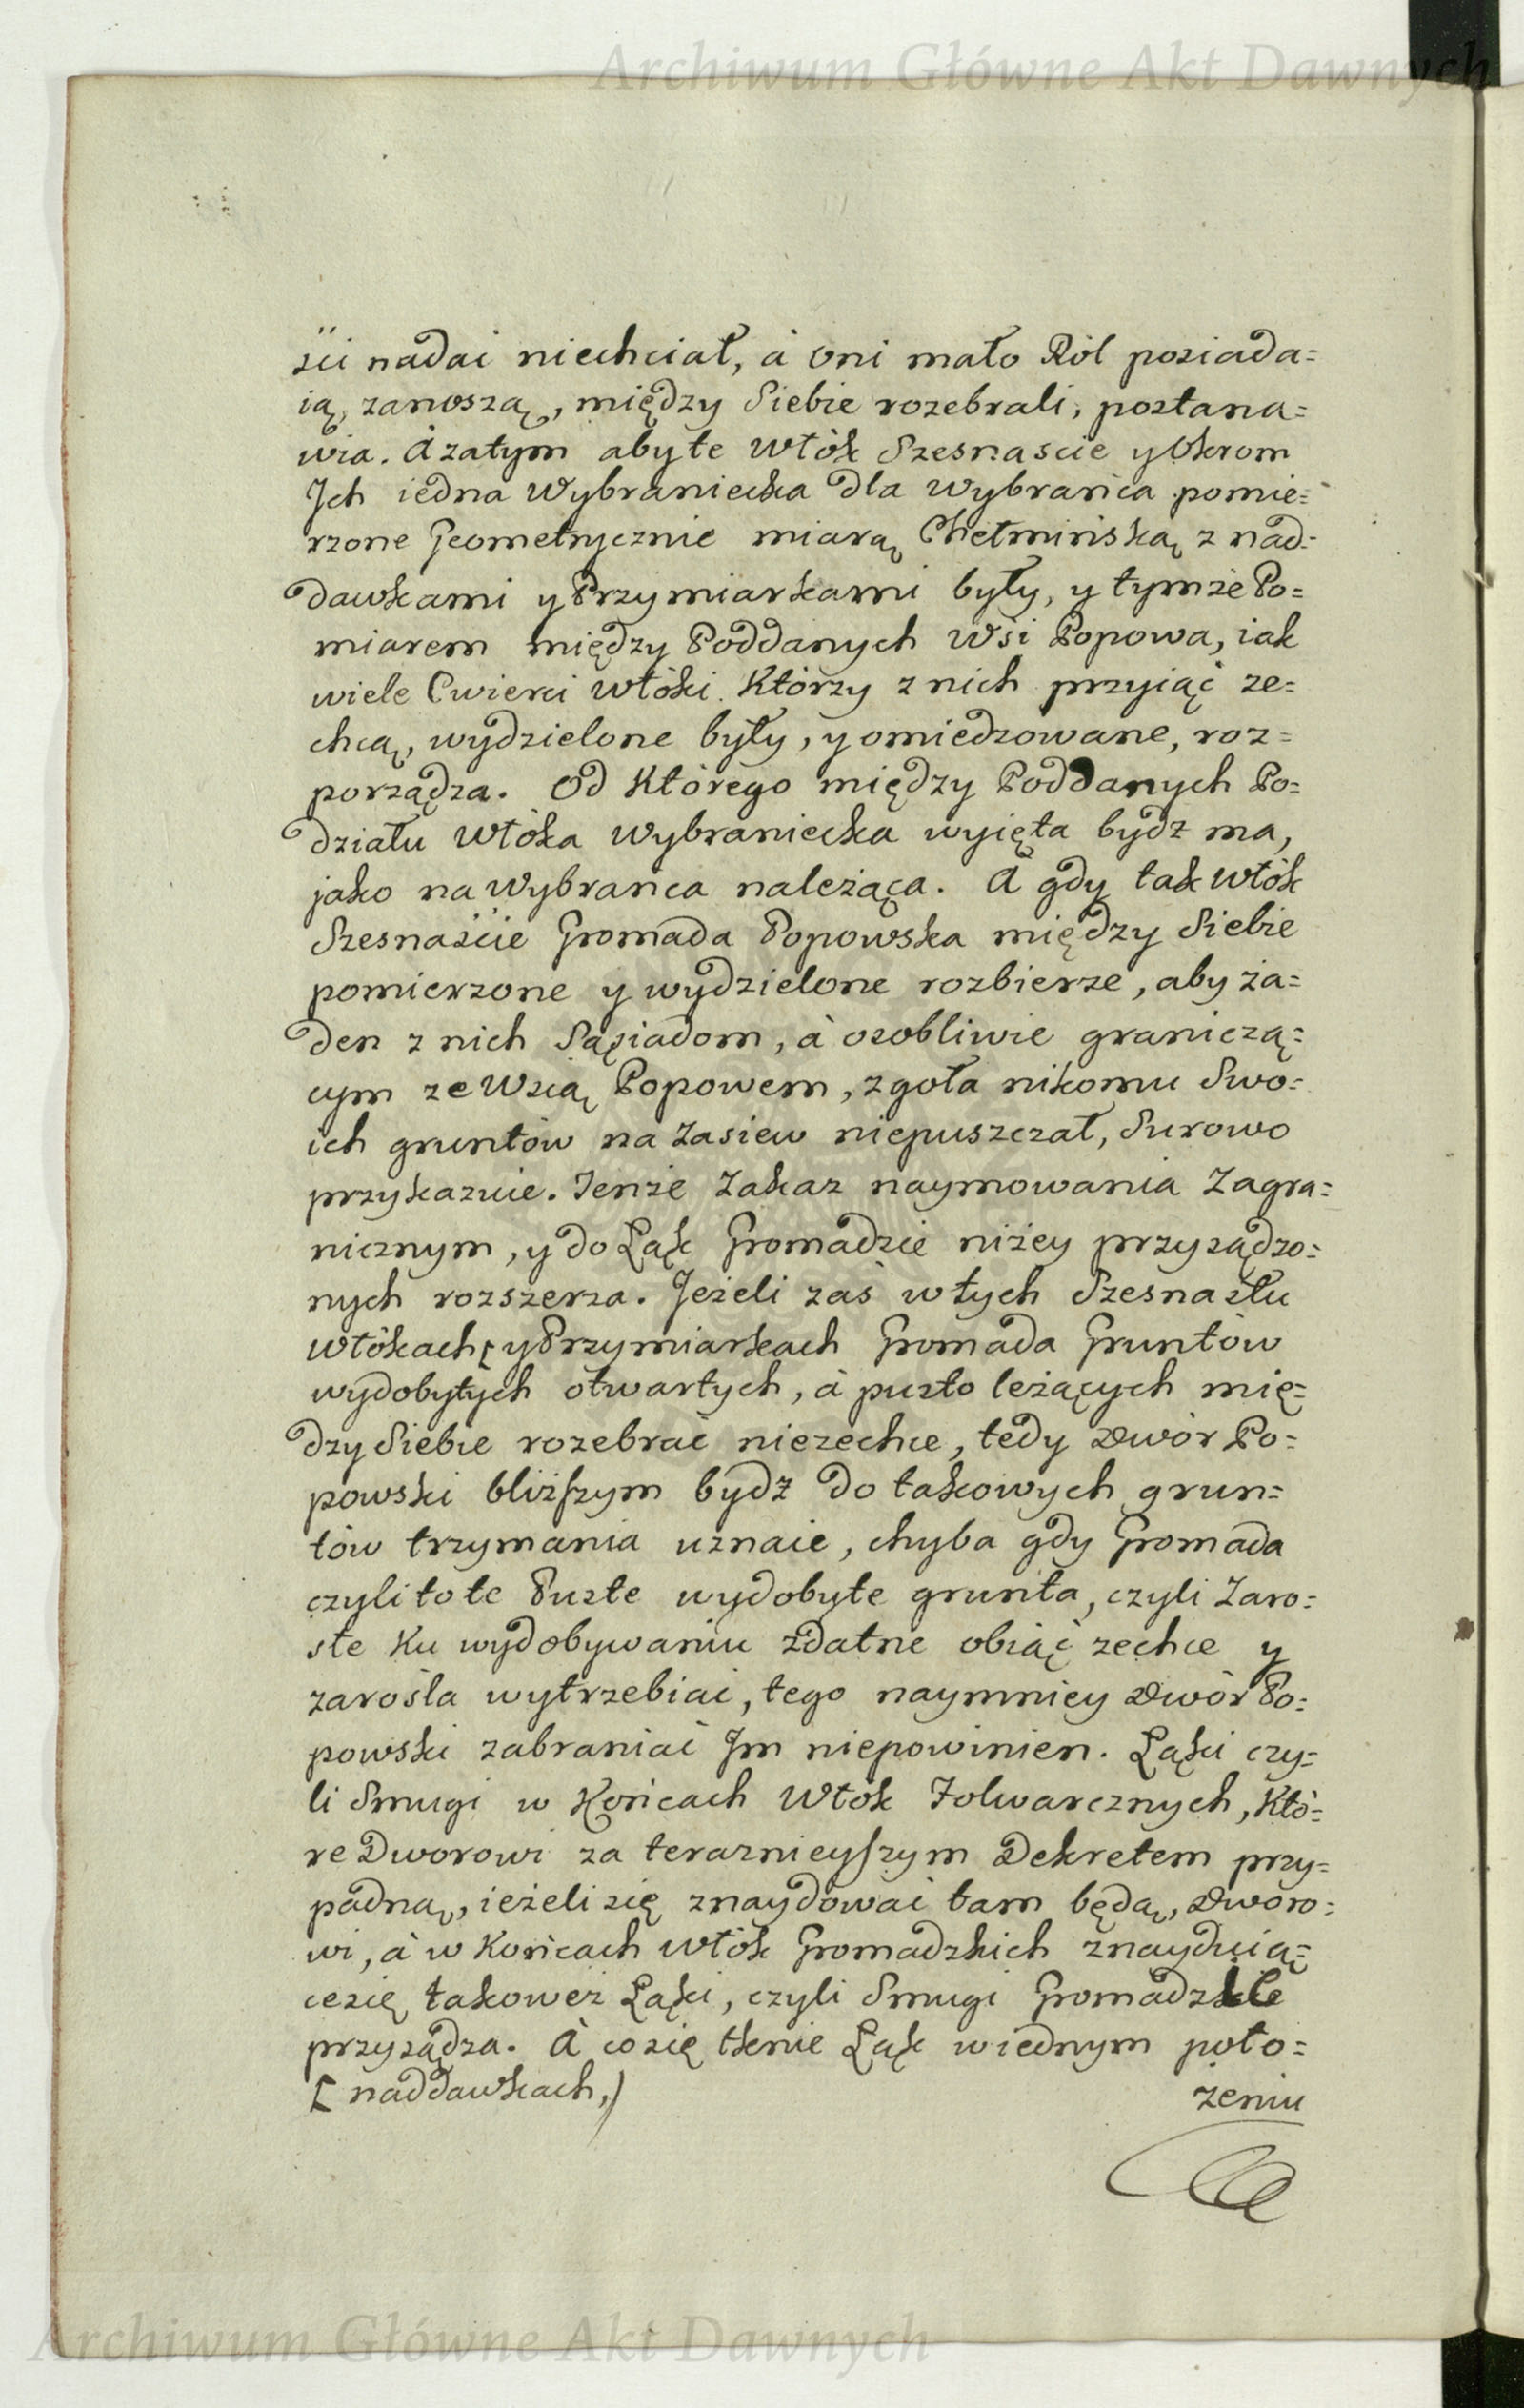 Archiwum Główne Akt Dawnych
ści nadać niechciał, à oni mało Ról posiada=
ią, zanoszą, między Siebie rozebrali, postana=
wia. A zatym aby te Włók Szesnascie y Okrom
Ich iedna Wybraniecka dla Wybrańca pomie=
rzone Geometrycznie miarą Chełmińską z nad=
dawkami y Przymiarkami były, y tymże Po=
miarem między Poddanych Wsi Popowa, iak
wiele Cwierci włóki Którzy z nich przyiąć ze=
chcą, wydzielone były, y omiedzowane, roz=
porządza. Od Którego między Poddanych Po=
działu Włóka Wybraniecka wyięta bydź ma,
jako na Wybrańca należąca. A gdy tak Włók
Szesnaście Gromada Popowska między Siebie
pomierzone y wydzielone rozbierze, aby ża=
den z nich Sąsiadom, à osobliwie graniczą=
cym ze Wsią Popowem, zgoła nikomu Swo=
ich gruntów na Zasiew niepuszczał, Surowo
przykazuie. Tenże Zakaz naymowania Zagra=
nicznym, y do Łąk Gromadzie niżey przysądzo=
nych rozszerza. Jeżeli zaś w tych Szesnastu
Włókach [ y Przymiarkach Gromada Gruntów
wydobytych otwartych, à pusto leżących mię=
dzy Siebie rozebrać niezechce, tedy Dwór Po=
powski bliższym bydź do takowych grun=
tów trzymania uznaie, chyba gdy Gromada
czyli to te Puste wydobyte grunta, czyli Zaro=
ste Ku wydobywaniu zdatne obiąć zechce y
zarośla wytrzebiać, tego naymniey Dwór Po=
powski zabraniać Im niepowinien. Łąki czy=
li Smugi w Końcach Włók Folwarcznych, Któ=
re Dworowi za teraznieyszym Dekretem przy=
padną, ieżeli się znaydować tam będą, Dworo=
wi, à w Końcach włók Gromadzkich znayduią=
cesię takoweż Łąki, czyli Smugi Gromadzkie
przysądza. A co się tknie Łąk w iednym poło=
[ naddawkach,)
żeniu
Archiwum Główne Akt Dawnych